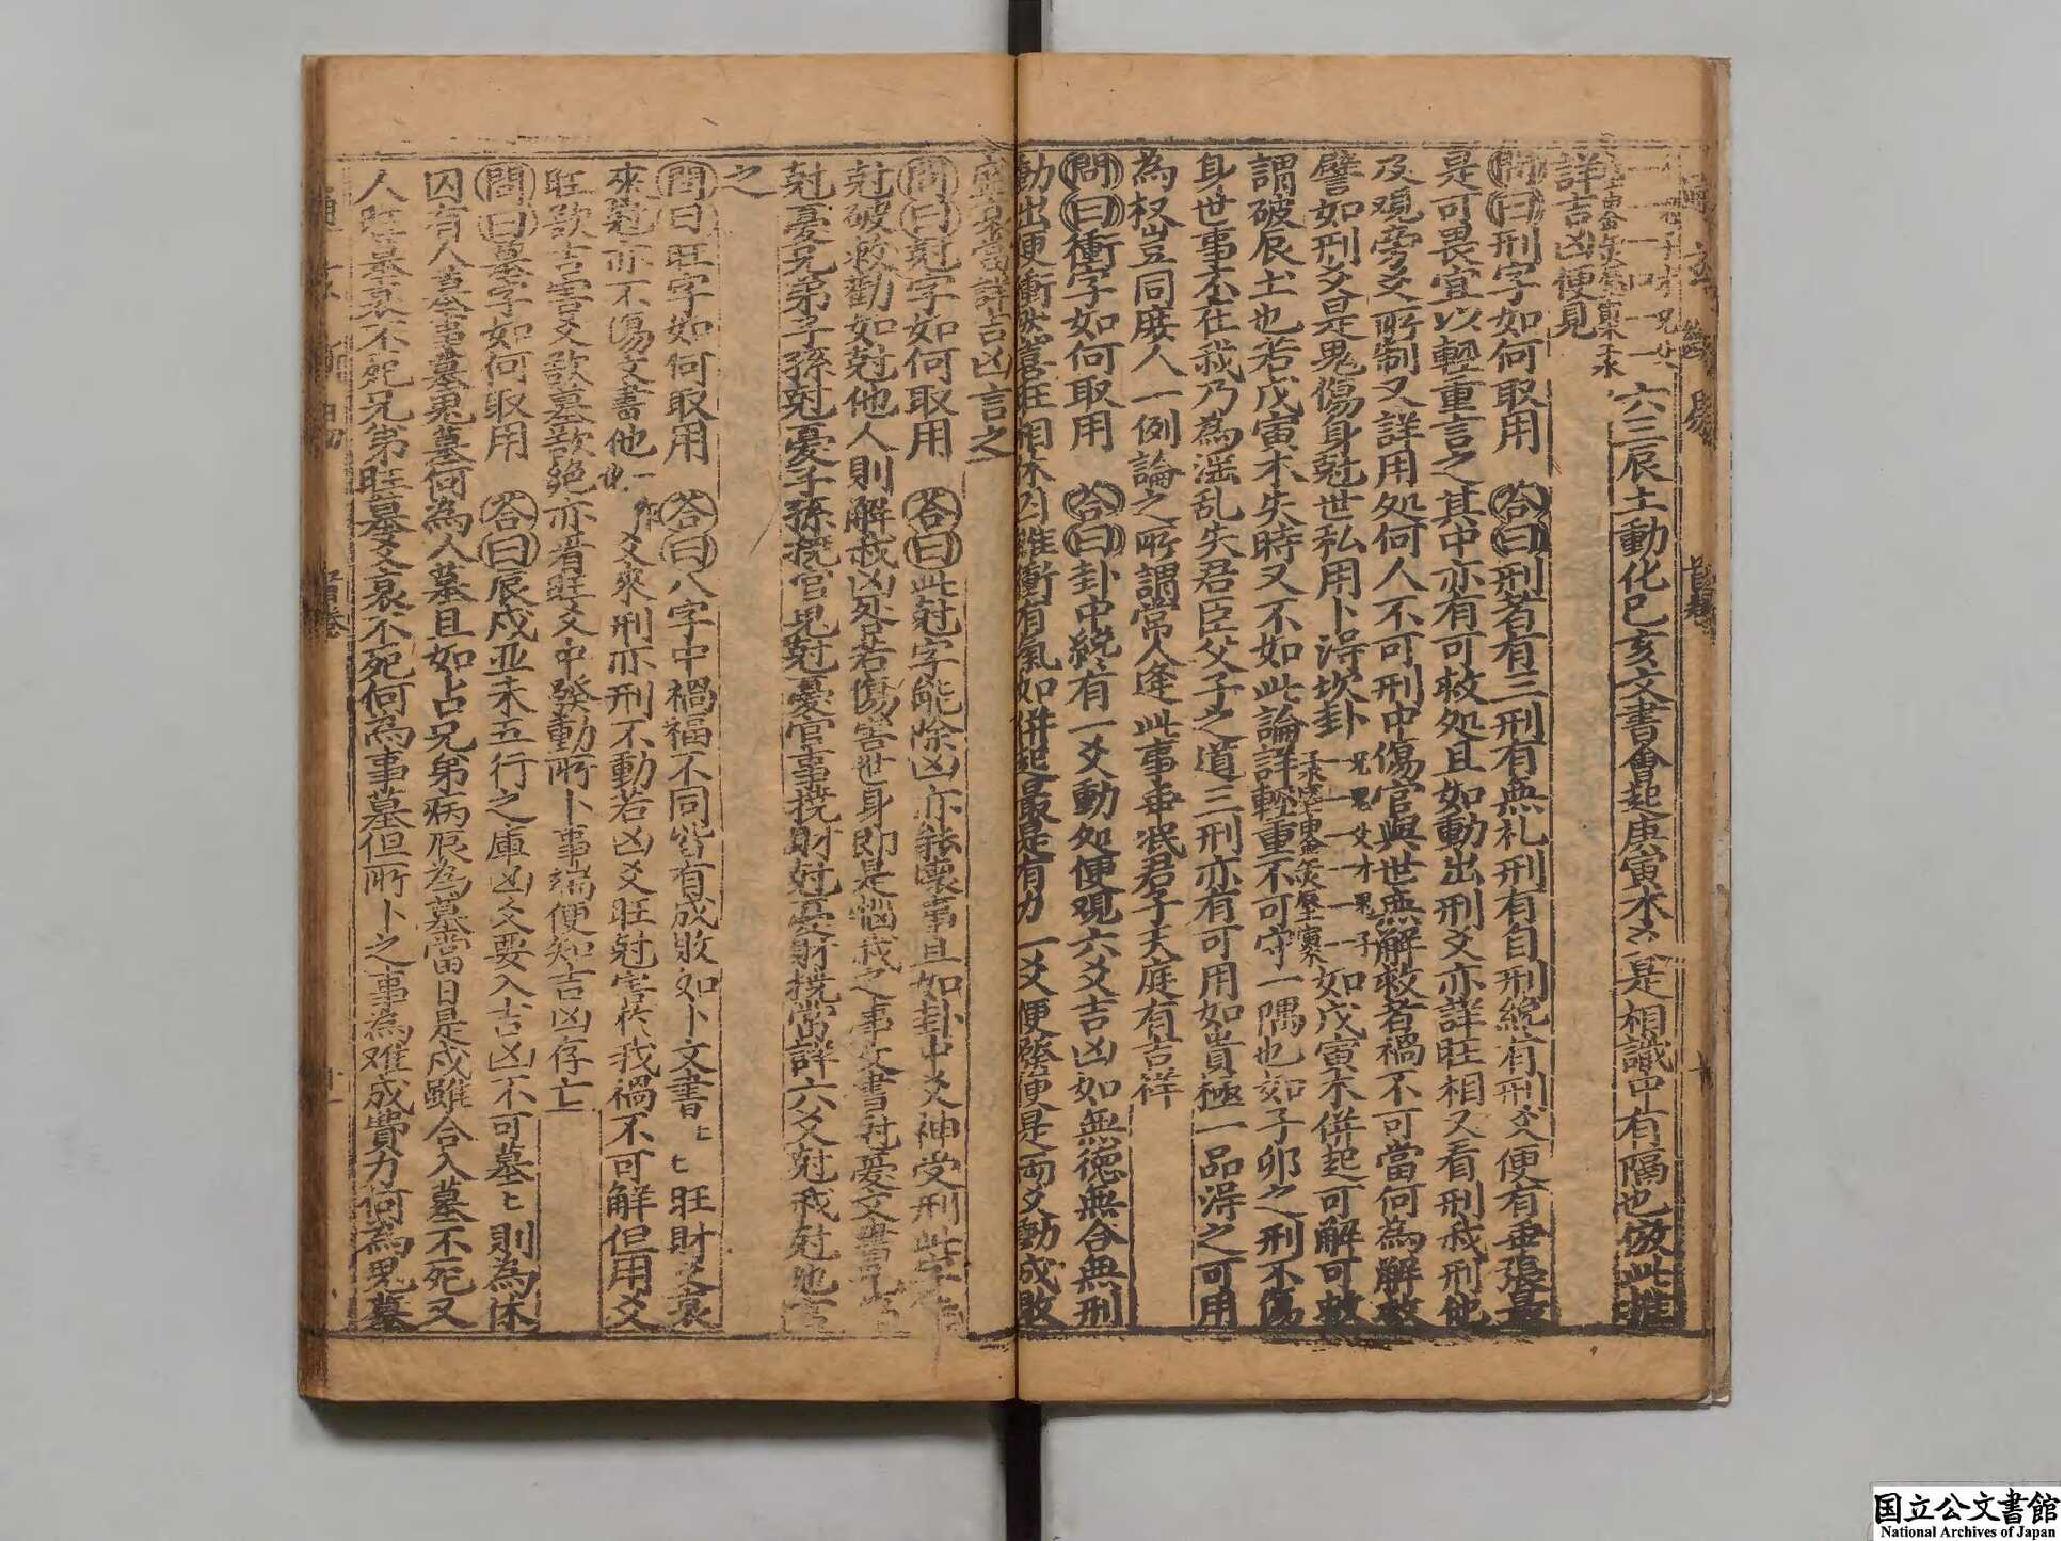 六三辰土動化巳亥文書會起庚寅水爻是相識中有隔也倣此推
詳吉凶便見
問曰刑字如何取用 答曰刑者有三刑有無礼刑有自刑緫有刑爻便有乖張最
是可畏宜以輕重言之其中亦有可救処且如動出刑爻亦詳旺相又看刑我刑他
及观旁爻所制又詳用処何人不可刑中傷官與世無解救者禍不可當何為解救
譬如刑爻是鬼傷身尅世私用卜得坎卦
如戊寅木併起可解可救
謂破辰土也若戊寅木失時又不如此論詳輕重不可守一隅也如子卯之刑不傷
身世事不在我乃為淫乱失君臣父子之道三刑亦有可用如貴極一品得之可用
為权豈同庶人一例論之所謂常人逢此事乖泯君子夫庭有吉祥
問曰衝字如何取用 答曰卦中緫有一爻動処便观六爻吉凶如無德無合無刑
動出便衝然看旺相休囚雖衝有氣如併起最是有力一爻便發便是兩爻動成敗
盛衰當詳吉凶言之
問曰尅字如何取用 答曰此尅字能除凶亦能壞事且如卦中爻神受刑此
尅破救勸如尅他人則解救凶処若傷害世身即是惱我之事文書尅憂文書兄
尅憂兄弟子孫尅憂子孫撓官鬼尅憂官事撓財尅憂財撓當詳六爻尅我尅他言
之
問曰旺字如何取用 答曰八字中禍福不同皆有成敗如卜文書旺財爻衰
來尅亦不傷文書他爻來刑亦刑不動若凶爻旺尅害於我禍不可解但用爻
旺欲吉害爻欲墓欲絶亦看旺爻中發動所卜事端便知吉凶存亡
問曰墓字如何取用 答曰辰戍丑未五行之庫凶爻要入吉凶不可墓〻則為休
囚有人墓事墓鬼墓何為人墓且如占兄弟病辰為墓當日是戍雖合入墓不死又
人旺墓衰不死兄弟旺墓爻衰不死何為事墓但所卜之事為难成費力何為鬼墓
国立公文書館
National Archives of Japan